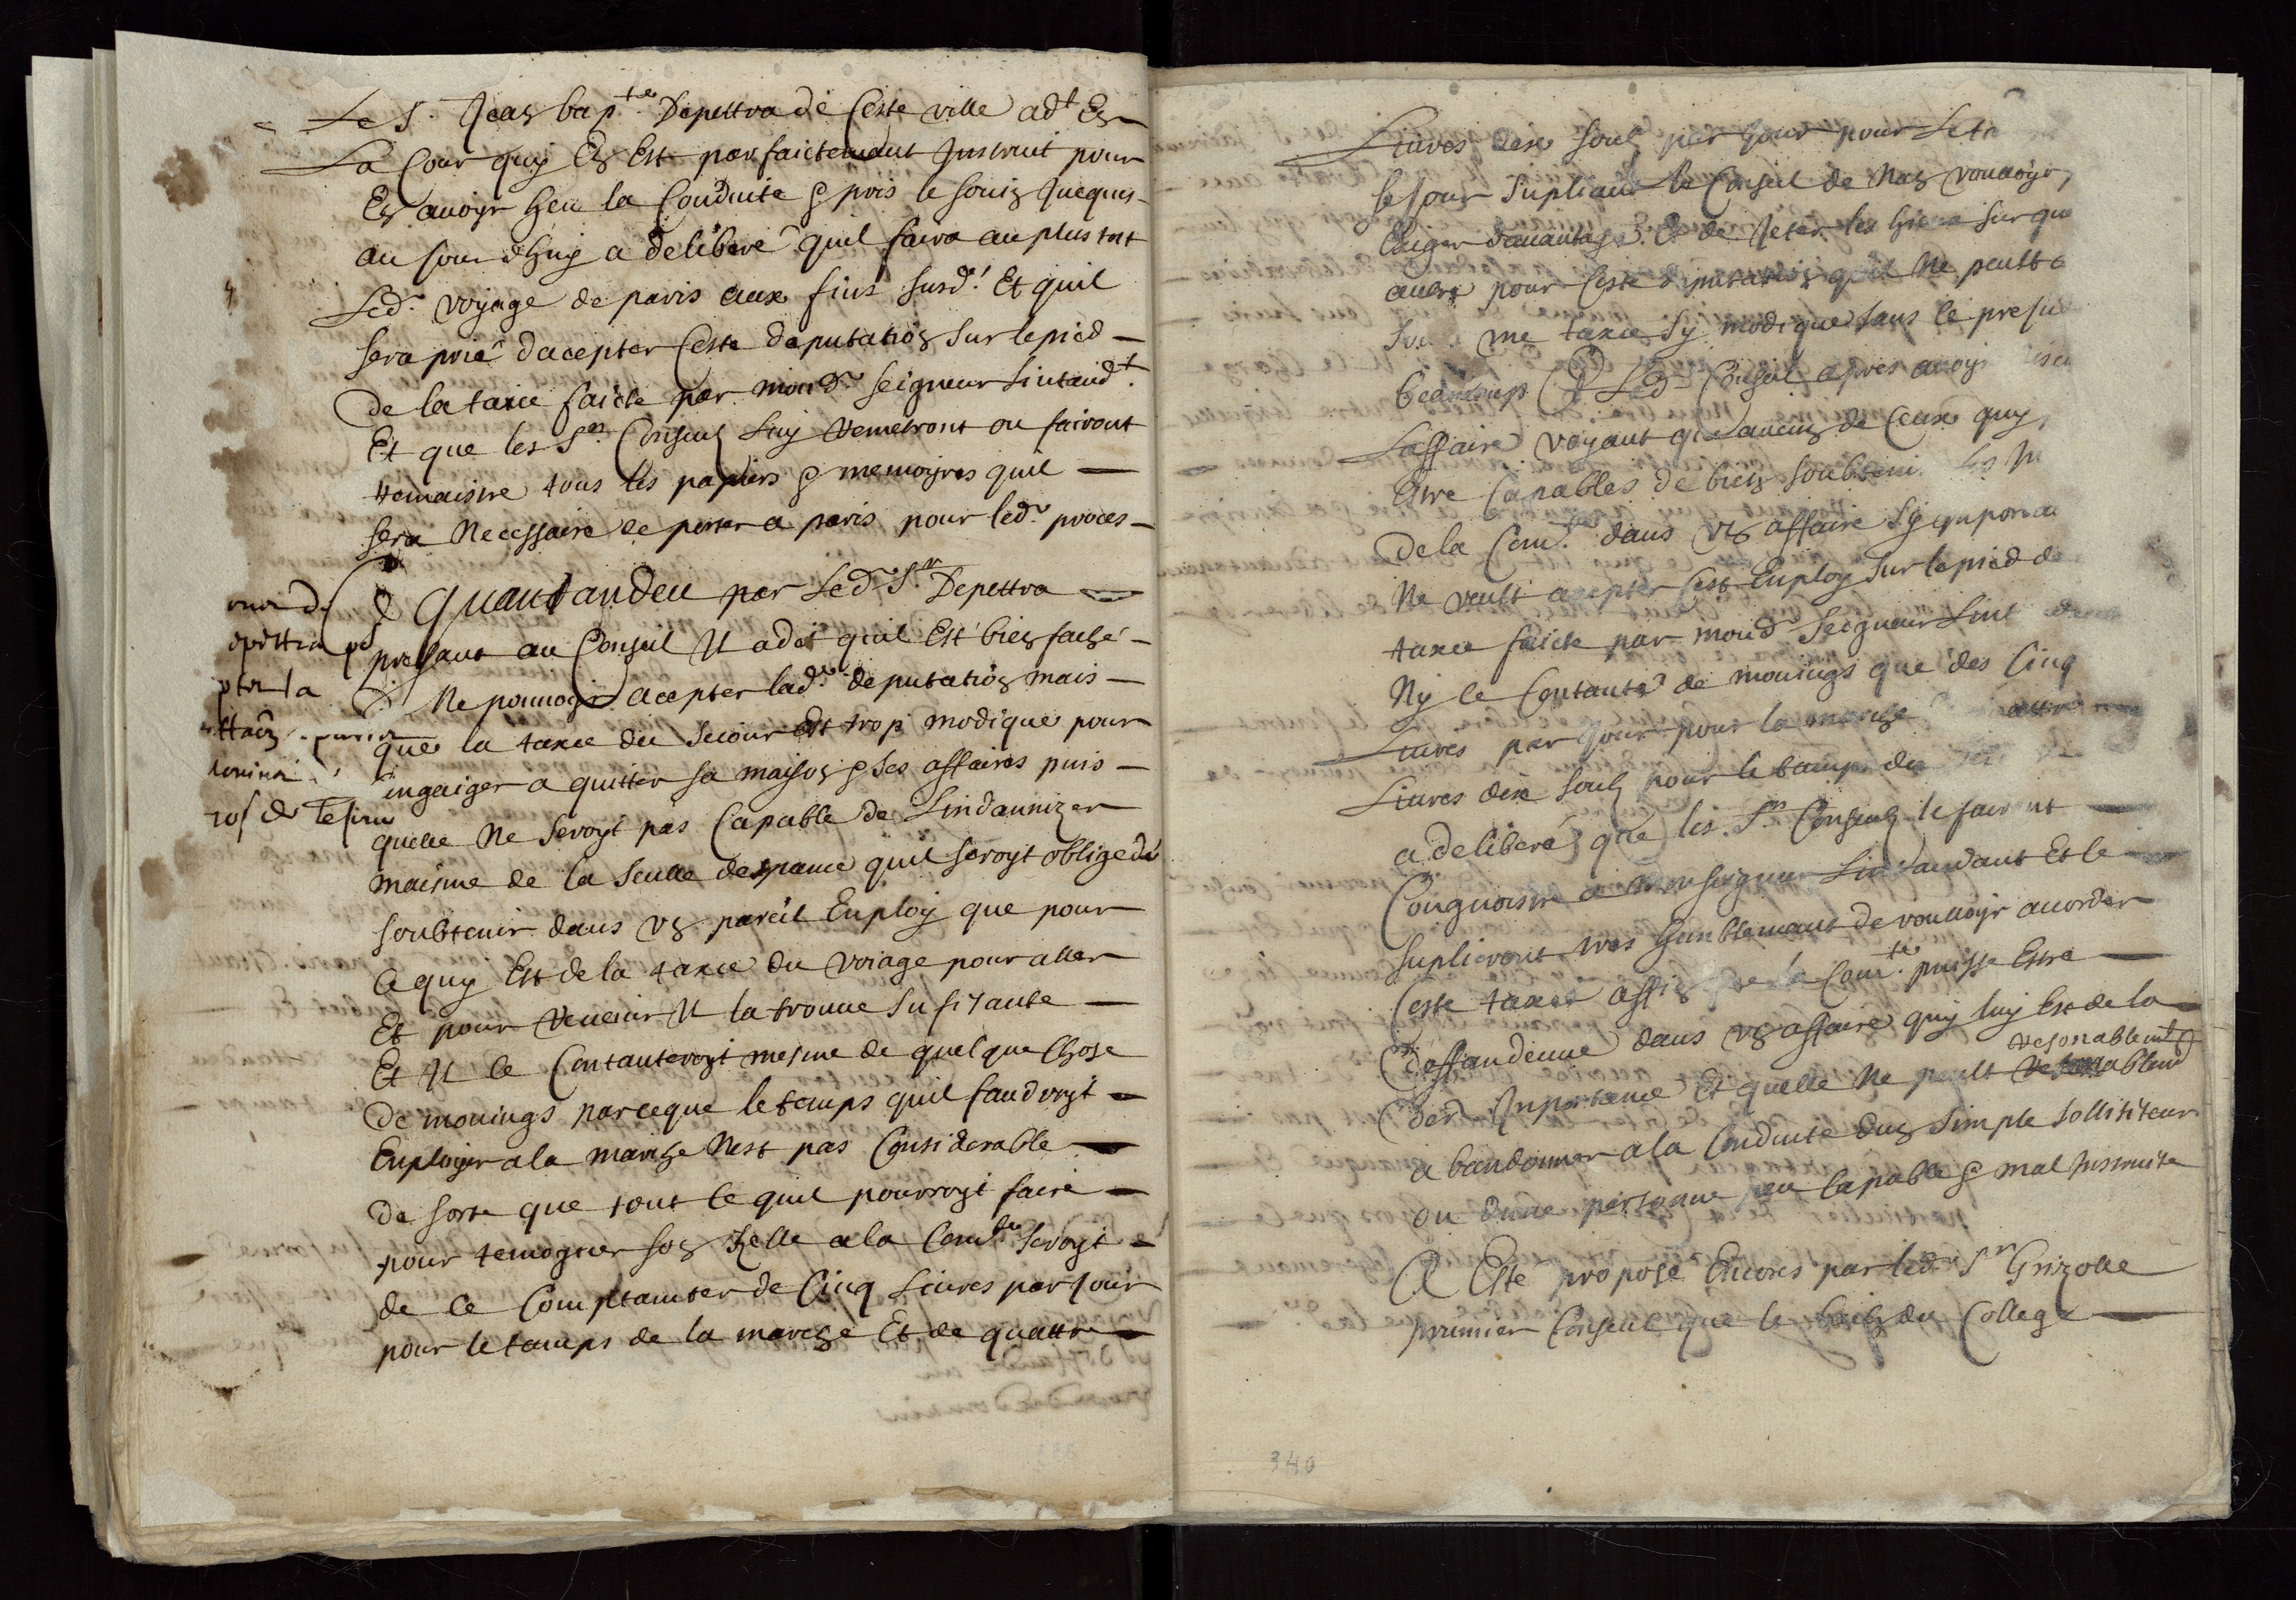 Le S.r Jean bap.te Depettra de Ceste ville ad.t En
La Cour quy En Est parfaictemant Instruit pour
En auoyr heu la Conduite & pris le soing Jucques
au jourdhuy a deliberé quil faira au plus tost
Led.r voyage de paris aux fins susd.' Et quil
sera prié dacepter Ceste deputation sur le pied
De la taxe faicte par mond.r seigneur Lintand.t
Et que les S.rs Conseulz Luy remetront ou fairont
remaistre tous les papiers & memoyres quil
sera Necessaire de porter a paris pour led.r proces
Et quant andeu par Led.r S.r Depettra
presant au Conseil Il a dit quil Est bien faché
De Ne pouuoir acepter lad.e deputation mais
que la taxe du sejour Est trop modique pour
lingaiger a quitter sa maison & ses affaires puis
quelle Ne seroyt pas Capable de Lindannizer
maisme de la seulle despance quil seroyt obligé de
soubtenir dans un pareil Employ que pour
Ce quy Est de la taxe du voiage pour aller
Et pour Reuenir Il la trouue sufisante
Et Il ce Contanteroyt mesme de quelque chose
De mouings parceque le temps quil faudroyt
Employer a la marche Nest pas Considerable
De sorte que tout ce quil pourroyt faire
pour temogner son Zelle a la Com.te seroyt
de ce Comptamter de Cinq Liures par jour
pour le tamps de la marche Et de quattre
pter la
Liures dix soulz par Jour pour Le
sejour Supliant le Conseil de Nen vouuoyr
laiger dauantage Et de Jeter les yeux sur que
autre pour Ceste deputation quil Ne peult
me taxe sy modique sans le preju
beaucoup Et Led.r Conseil apres auoyr
Laffaire voyant que aucun de Ceux quy
Estre Capables de bien soubteni les
De la Com.te dans un affaire sy importa
Ne veult acepter Cest Employ sur le pied de
taxe faicte par mond.r Seigneur Lint
Ny ce Contanter de mouings que des Cinq
Liures par Jour pour la marche
Liures dix soulz pour le tamps du
a deliberé que les S.rs Conseulz le fairont
Cougnoistre a Monseigneur Lintandant Et le
suplieront tres humblemant de vouuoyr acorder
Ceste taxe affin que la Com.te puisse Estre
Deffandeuue dans un affaire quy luy Est de la
resonablem.t
Der.re Importance Et quelle Ne peult
a bandonner a la Conduite dun simple sollisiteur
ou dune personne peu Capable & mal Instruite
A Este proposé Encores par led.r S.r Grizolle
prumier Conseul que le bail du College
340